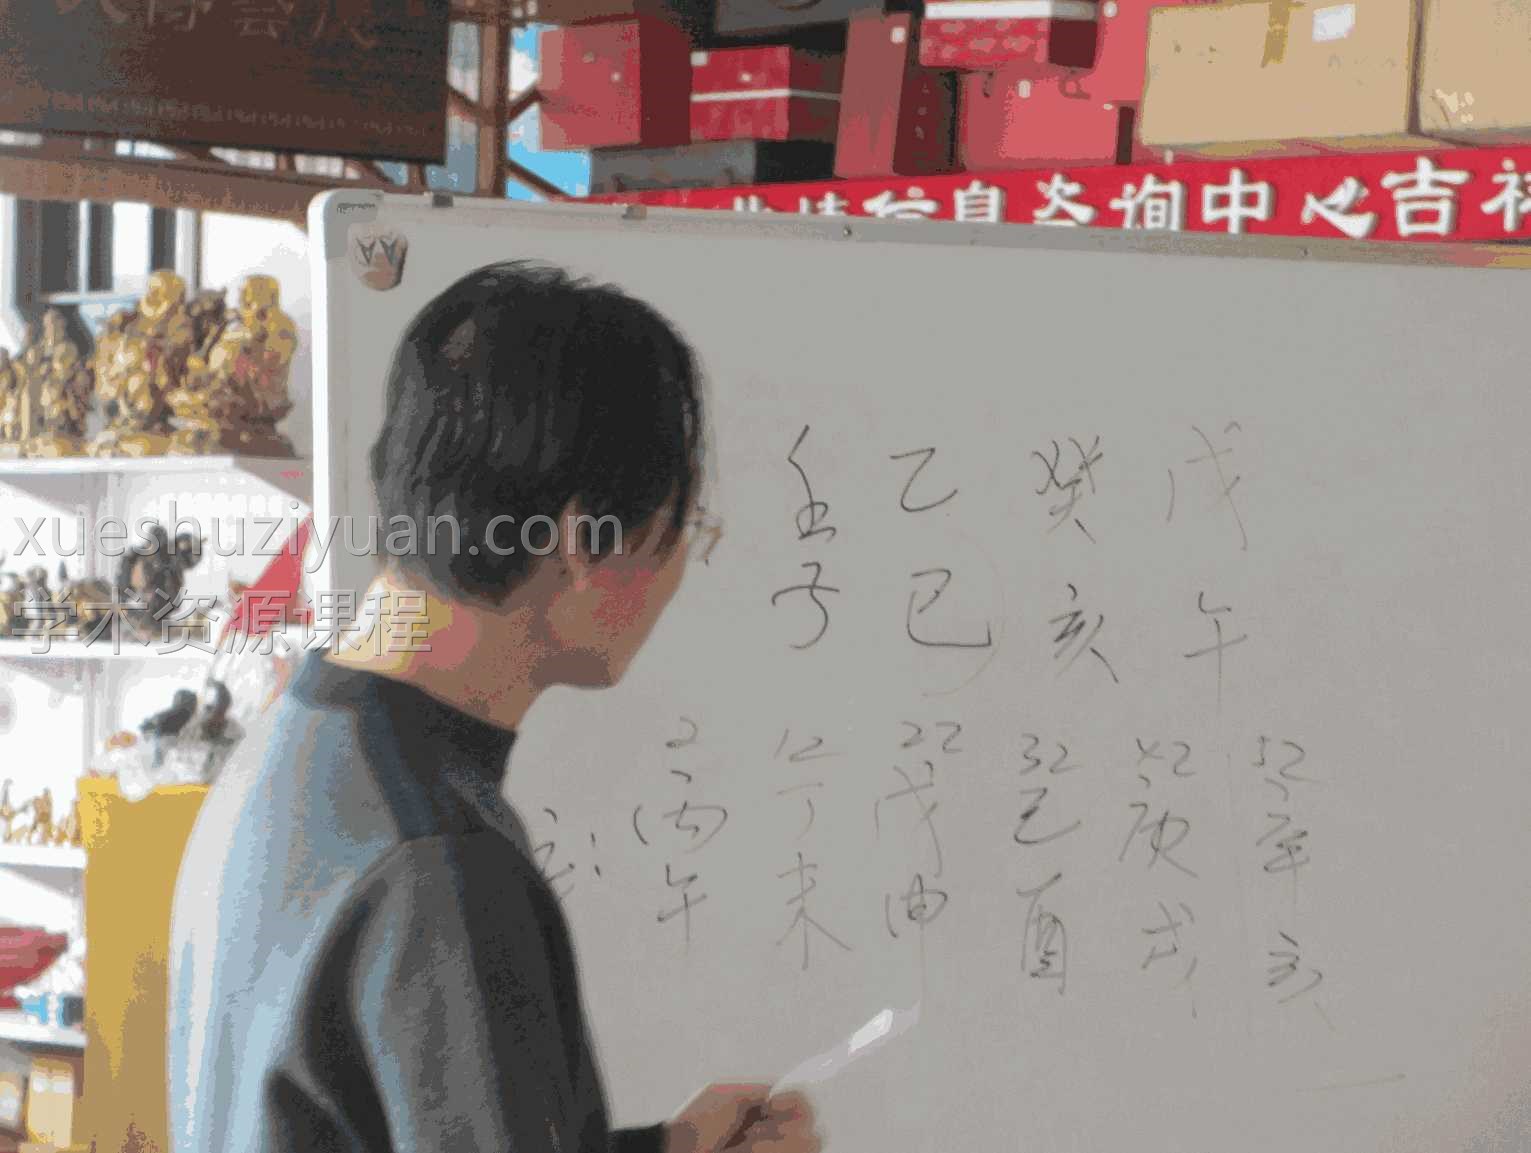 信息咨询中心吉祥
壬 乙 癸 戊
子 巳 亥 午
2 12 22 32 42 52
丙 丁 戊 己 庚 辛
午 未 申 酉 戌 亥
xueshuziyuan.com
学术资源课程